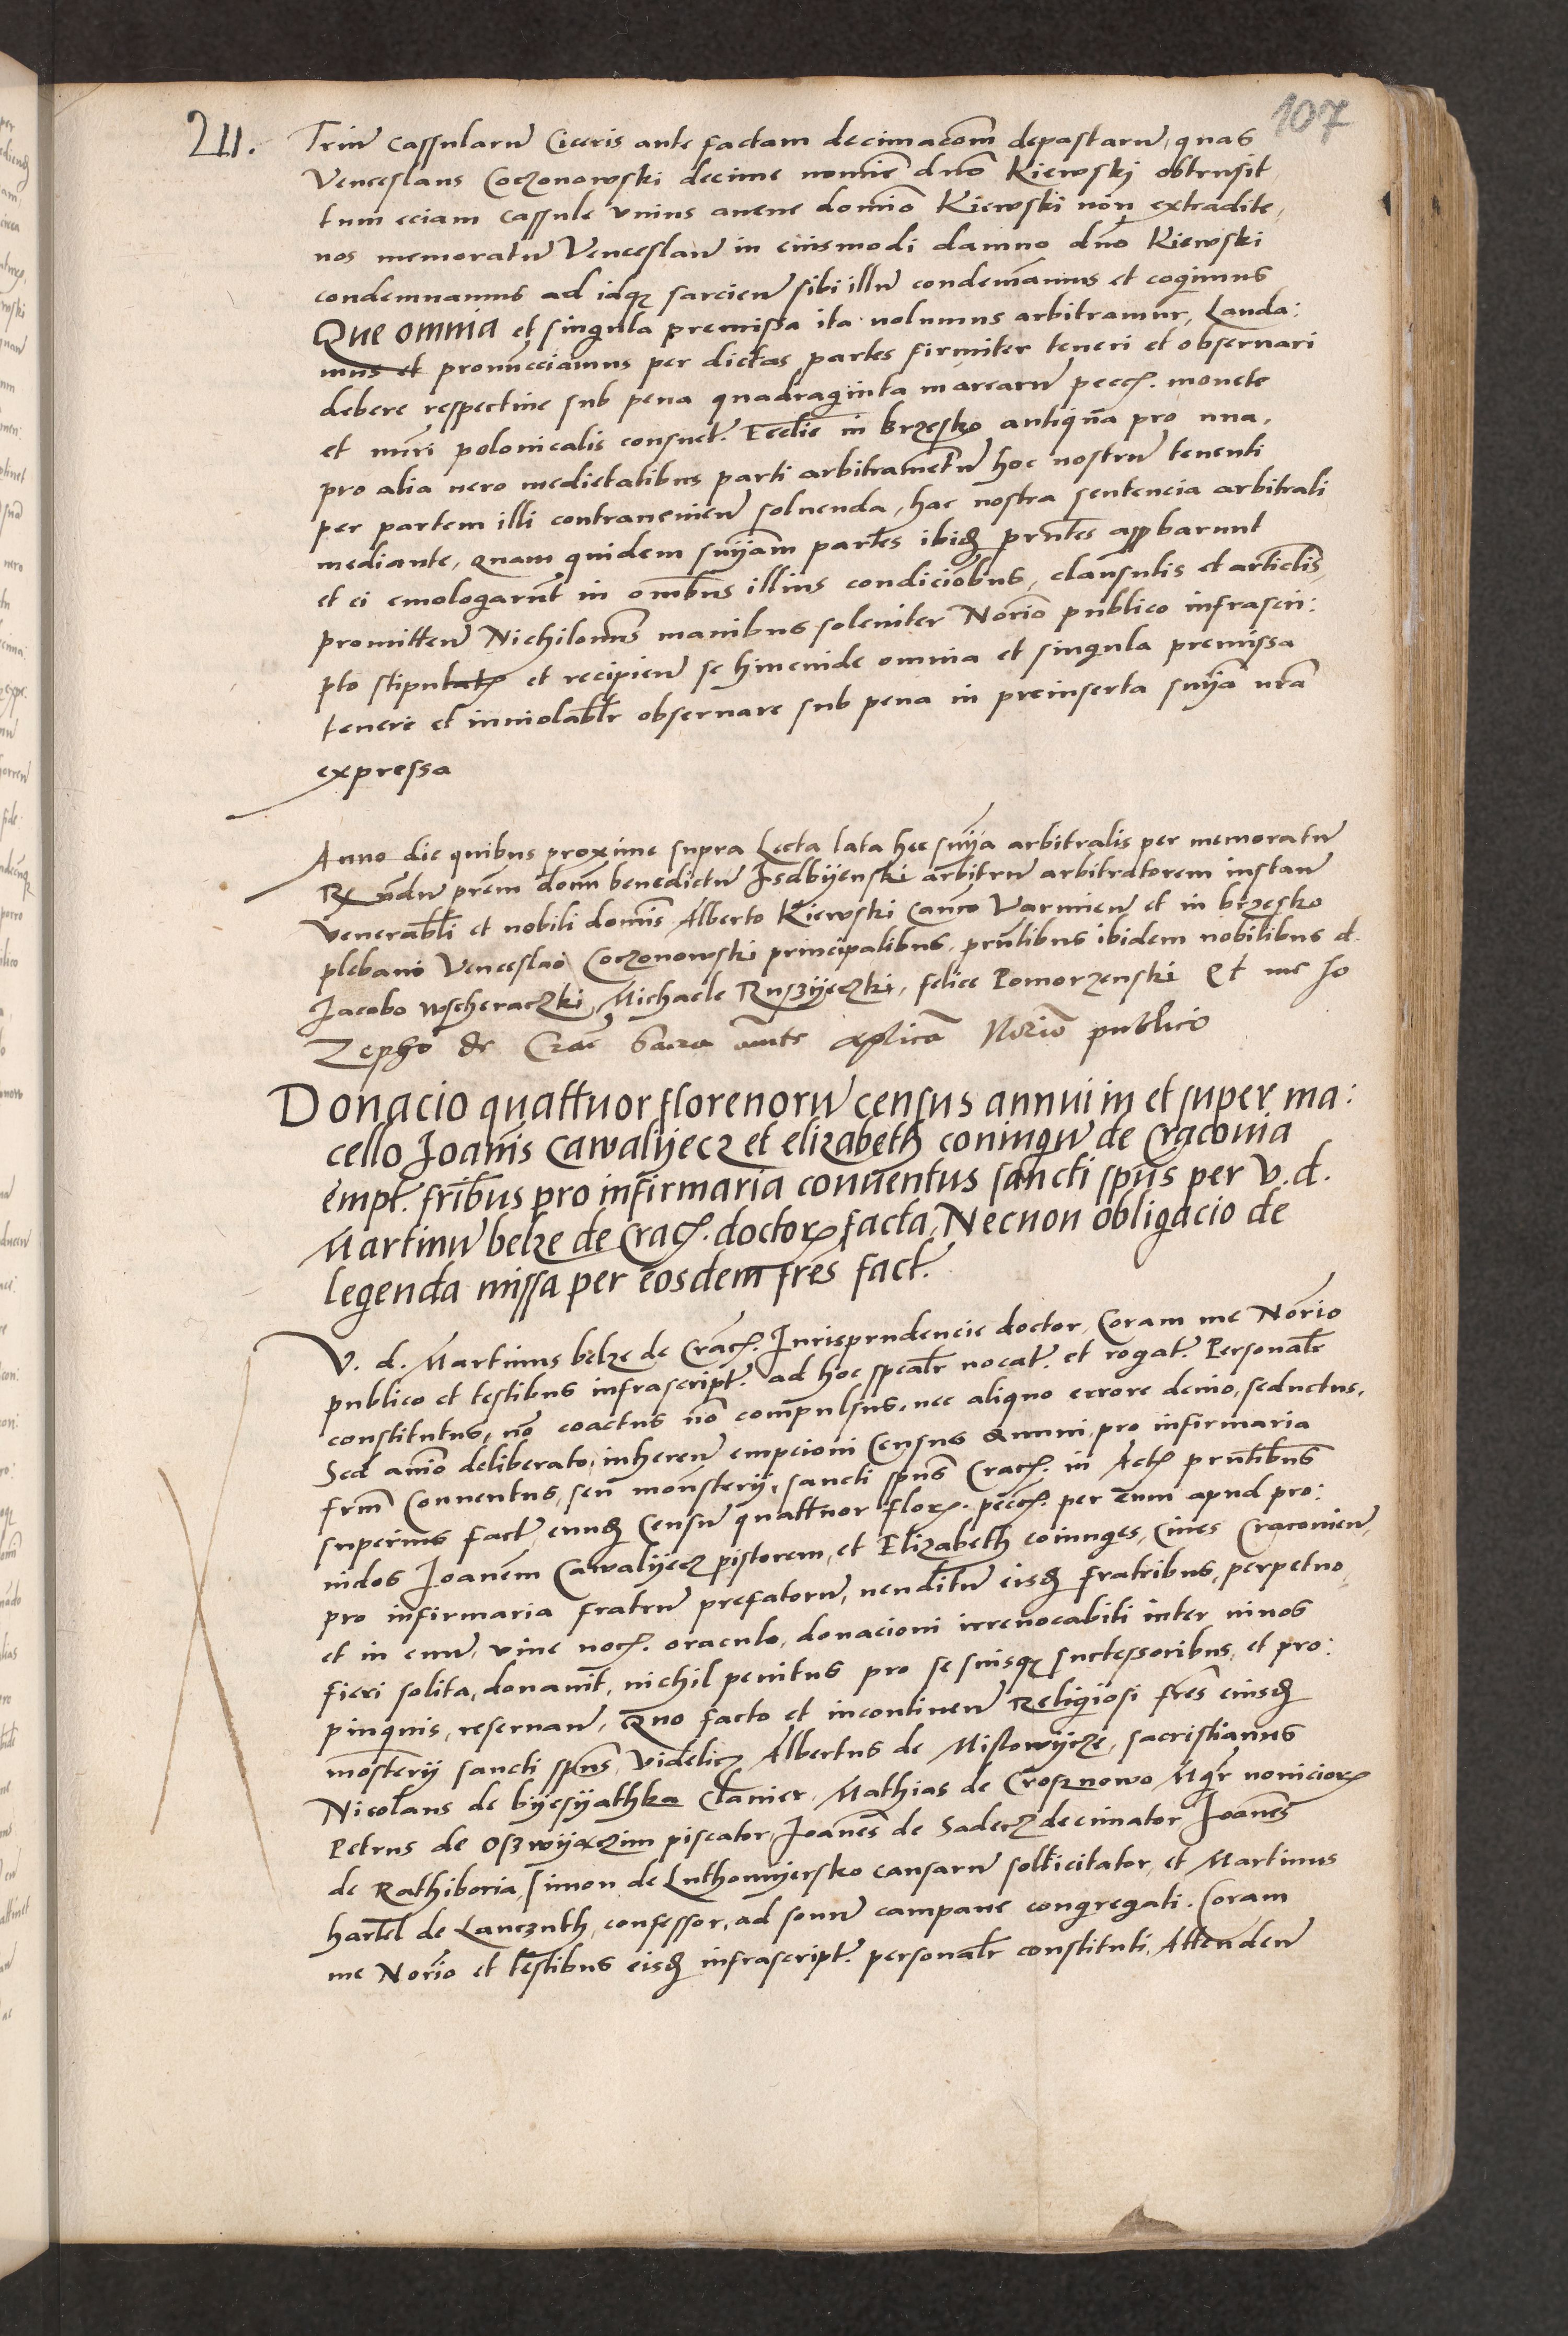 211.
107
Triū cassularū Ciceris ante factam decimacōm depastarū, quas
Venceslaus Coczonowski decime nomiē dnō Kiewskj obtrusit
tum eciam cassule vnius auene domiō Kiewski nōn extradite,
nos memoratū Venceslaū in eiusmodi damno dnō Kiewski
condemnamus ad idqȝ sarcien̄ sibi illū condemāmus et cogimus
Que omnia et singula premissa ita uolumus arbitramur, Lauda:
mus et pronūcciamus per dictas partes firmiter teneri et obseruari
debere respectiue sub pena quadraginta marcarū pecc. monete
et nūri polonicalis consuet. Ecclīe in brzesko antiqua pro una,
pro alia uero medietatibus parti arbitramētū hoc nostrū tenenti
per partem illi contrauenien̄ soluenda, hac nostra sentencia arbitrali
mediante, Quam quidem sniam partes ibidē prntēs appbarunt
et ei emologarūt in om̄ibus illius condiciōbus, clausulis et articlis,
promitten̄ Nichilomūs manibus soleniter Norīo publico infrascri:
pto stipulatȝ et recipien̄ se hincinde omnia et singula premissa
tenere et inuiolablr obseruare sub pena in preinserta snīa nrā
expressa
Anno die quibus proxime supra Lecta lata hec snīa arbitralis per memoratū
Rx̄ndū prēm domū benedictū Isdbijenski arbitrū arbitratorem instan̄
Venerabli et nobili domīs Alberto Kiewski Canco Varmien̄ et in brzesko
plebano Venceslao Coczonowski principalibus, prntibus ibidem nobilibus d.
Jacobo wscheraczki, Michaele Ruszijeczki, felice Pomorzenski Et me Jo
Zepho de Crac̄ Sacra auṫe aplica Norīo publico
Donacio quattuor florenorū census annui in et super ma:
cello Joannis Cawalijecz et elizabeth coniugū de Cracouia
empt. frībus pro infirmaria conuentus sancti spūs per v. d.
Martinū belze de Crac. doctorē facta, Necnon obligacio de
legenda missa per eosdem frēs fact.
V. d. Martinus belze de Crac. Iurisprudencie doctor, Coram me Norīo
publico et testibus infrascript. ad hoc spealr uocat. et rogat. Personalr
constitutus, nō coactus nō compulsus, nec aliquo errore deuio, seductus,
Sed aīo deliberato, inheren̄ empcioni Census Annui, pro infirmaria
frm̄ Conuentus, seu monsterij, sancti spūs Crac. in Actȝ prntībus
superius fact, eundē Censū quattuor flor. pecc. per eum apud pro:
uidos Joanēm Cawalijecz pistorem, et Elizabeth coiunges, Ciues Cracouien̄,
pro infirmaria fratrū prefatorū, uenditū eisdē fratribus, perpetuo
et in euū, viue uoc. oraculo, donacioni irreuocabili inter uiuos
fieri solita, donauit, nichil penitus pro se suisqȝ suctessoribus, et pro:
pinquis, reseruan̄, Quo facto et incontinen̄ Religiosi frēs eiusdē
mosterij sancti spūs, Videlicȝ Albertus de Mislowijcze, sacristianus
Nicolaus de bijesijathka Clauier, Mathias de Crosznowo Mgr nouiciorȝ
Petrus de Oszwijaczim piscator, Joanēs de Sadecz decimator Joanēs
de Rathiboria, Simon de Luthomijersko causarū sollicitator, et Martinus
hartel de Lanczuth, confessor, ad sonū campane congregati. Coram
me Norīo et testibus eisdē infrascript. personalr constituti, Attenden̄